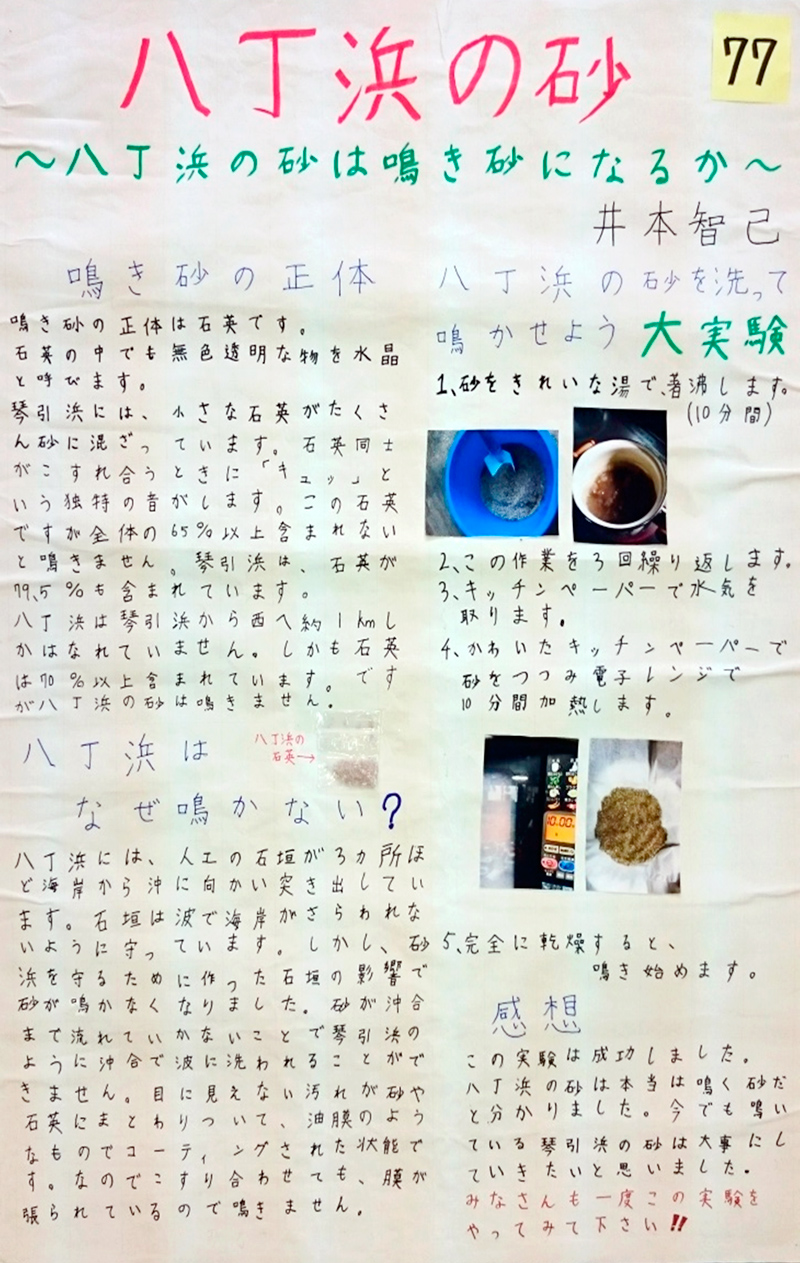 八丁浜の砂
77
～八丁浜の砂は鳴き砂になるか～
井本智己
鳴き砂の正体
鳴き砂の正体は石英です。
石英の中でも無色透明な物を水晶
と呼びます。
琴引浜には、小さな石英がたくさ
ん砂に混ざっています。石英同士
がこすれ合うときに「キュッ」と
いう独特の音がします。この石英
ですが全体の65%以上含まれない
と鳴きません。琴引浜は、石英が
79.5%も含まれています。
八丁浜は琴引浜から西へ約1kmし
かはなれていません。しかも石英
は70%以上含まれています。です
が八丁浜の砂は鳴きません。
八丁浜の
石英→
八丁浜は
なぜ鳴かない?
八丁浜には、人工の石垣が3カ所ほ
ど海岸から沖に向かい突き出してい
ます。石垣は波で海岸がさらわれな
いように守っています。しかし、砂
浜を守るために作った石垣の影響で
砂が鳴かなくなりました。砂が沖合
まで流れていかないことで琴引浜の
ように沖合で波に洗われることがで
きません。目に見えない汚れが砂や
石英にまとわりついて、油膜のよう
なものでコーティングされた状態で
す。なのでこすり合わせても、膜が
張られているので鳴きません。
八丁浜の砂を洗って
鳴かせよう大実験
1、砂をきれいな湯で、著沸します。
(10分間)
2、この作業を3回繰り返します。
3、キッチンペーパーで水気を
取ります。
4、かわいたキッチンペーパーで
砂をつつみ電子レンジで
10分間加熱します。
10:00
5、完全に乾燥すると、
鳴き始めます。
感想
この実験は成功しました。
八丁浜の砂は本当は鳴く砂だ
と分かりました。今でも鳴い
ている琴引浜の砂は大事にし
ていきたいと思いました。
みなさんも一度この実験を
やってみて下さい!!